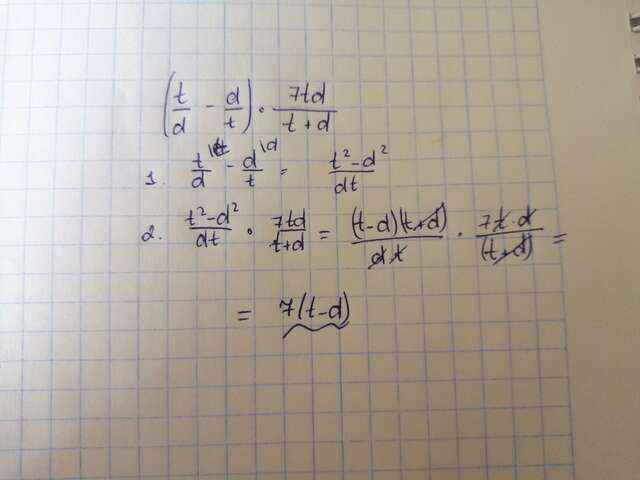 (t/d - d/t) · 7td/(t+d)
1. t/d^{\t} - d/t^{\d} = (t²-d²)/dt
2. (t²-d²)/dt · 7td/(t+d) = (t-d)(t+d)/(d t) · 7t·d/(t+d) =
= 7(t-d)